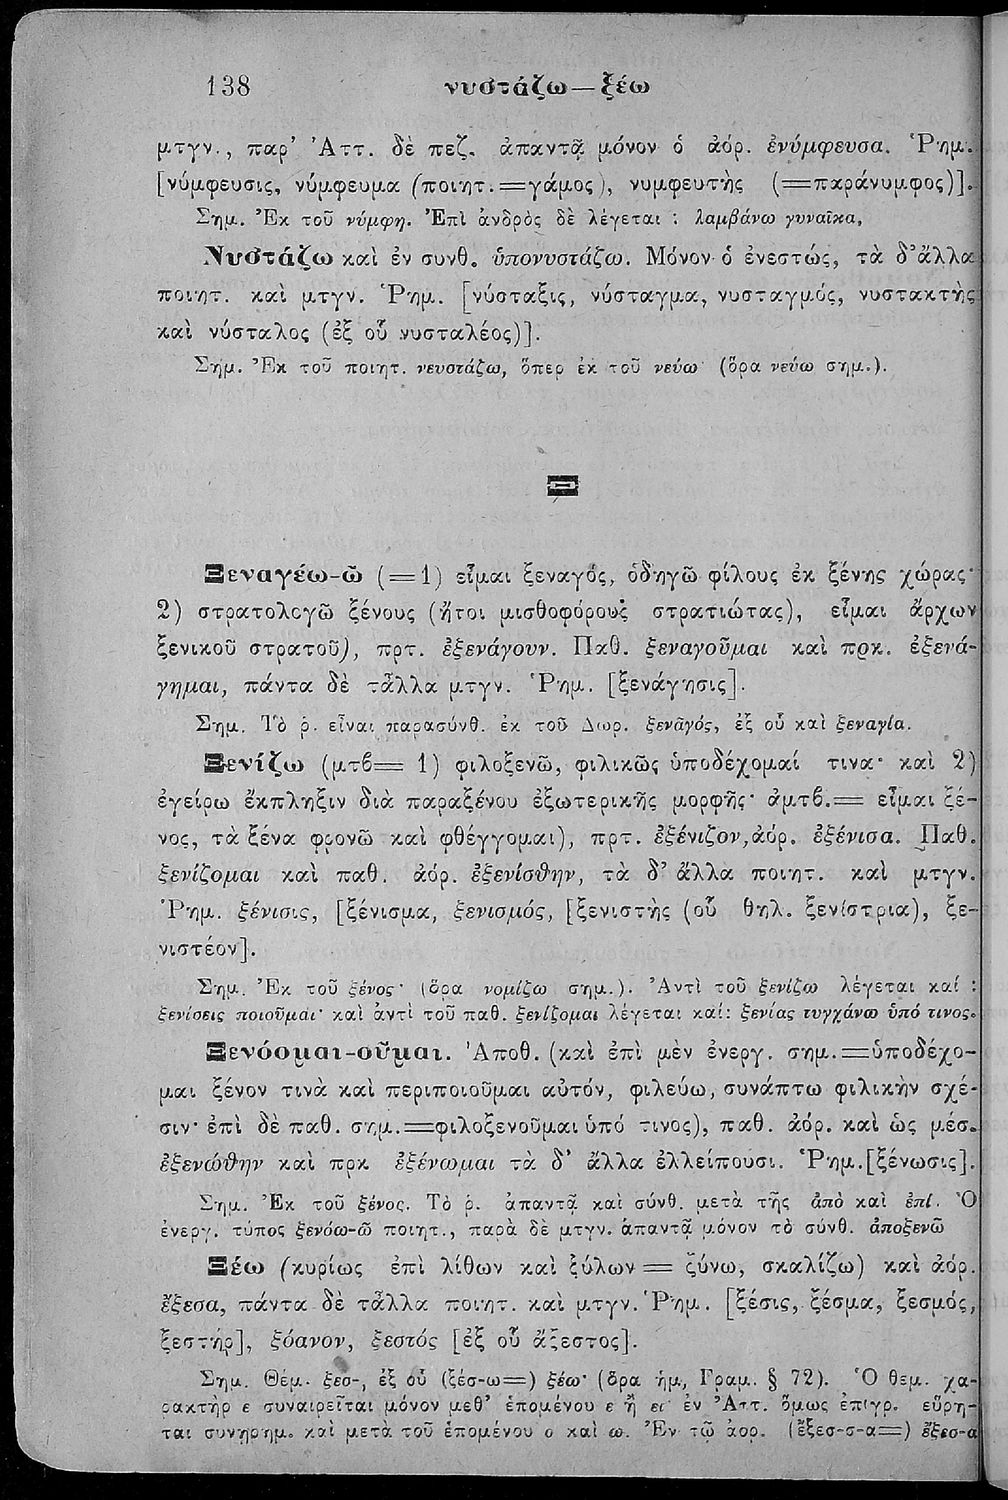 138 νυστάζω — ξέω
μτγν., παρ' Ἀττ. δὲ πεζ. ἀπαντᾷ μόνον ὁ ἀόρ. ἐνύμφευσα. Ῥημ.
[νύμφευσις, νύμφευμα (ποιητ.=γάμος), νυμφευτὴς (=παράνυμφος)].
Σημ. Ἐκ τοῦ νύμφη. Ἐπὶ ἀνδρὸς δὲ λέγεται : λαμβάνω γυναῖκα,
Νυστάζω καὶ ἐν συνθ. ὑπονυστάζω. Μόνον ὁ ἐνεστώς, τὰ δ' ἄλλα
ποιητ. καὶ μτγν. Ῥημ. [νύσταξις, νύσταγμα, νυσταγμός, νυστακτὴς
καὶ νύσταλος (ἐξ οὗ νυσταλέος)].
Σημ. Ἐκ τοῦ ποιητ. νευστάζω, ὅπερ ἐκ τοῦ νεύω (ὅρα νεύω σημ.).
Ξ
Ξεναγέω-ῶ (=1) εἶμαι ξεναγός, ὁδηγῶ φίλους ἐκ ξένης χώρας·
2) στρατολογῶ ξένους (ἤτοι μισθοφόρους στρατιώτας), εἶμαι ἄρχων
ξενικοῦ στρατοῦ), πρτ. ἐξενάγουν. Παθ. ξεναγοῦμαι καὶ πρκ. ἐξενά-
γημαι, πάντα δὲ τἆλλα μτγν. Ῥημ. [ξενάγησις].
Σημ. Τὸ ῥ. εἶναι παρασύνθ. ἐκ τοῦ Δωρ. ξενᾱγός, ἐξ οὗ καὶ ξεναγία.
Ξενίζω (μτβ= 1) φιλοξενῶ, φιλικῶς ὑποδέχομαί τινα· καὶ 2)
ἐγείρω ἔκπληξιν διὰ παραξένου ἐξωτερικῆς μορφῆς· ἀμτβ.= εἶμαι ξέ-
νος, τὰ ξένα φρονῶ καὶ φθέγγομαι), πρτ. ἐξένιζον, ἀόρ. ἐξένισα. Παθ.
ξενίζομαι καὶ παθ. ἀόρ. ἐξενίσθην, τὰ δ' ἄλλα ποιητ. καὶ μτγν.
Ῥημ. ξένισις, [ξένισμα, ξενισμός, [ξενιστὴς (οὗ θηλ. ξενίστρια), ξε-
νιστέον].
Σημ. Ἐκ τοῦ ξένος· (ὅρα νομίζω σημ.). Ἀντὶ τοῦ ξενίζω λέγεται καί :
ξενίσεις ποιοῦμαι· καὶ ἀντὶ τοῦ παθ. ξενίζομαι λέγεται καί: ξενίας τυγχάνω ὑπό τινος.
Ξενόομαι-οῦμαι. Ἀποθ. (καὶ ἐπὶ μὲν ἐνεργ. σημ.=ὑποδέχο-
μαι ξένον τινὰ καὶ περιποιοῦμαι αὐτόν, φιλεύω, συνάπτω φιλικὴν σχέ-
σιν· ἐπὶ δὲ παθ. σημ.=φιλοξενοῦμαι ὑπό τινος), παθ. ἀόρ. καὶ ὡς μέσ.
ἐξενώθην καὶ πρκ ἐξένωμαι τὰ δ' ἄλλα ἐλλείπουσι. Ῥημ.[ξένωσις].
Σημ. Ἐκ τοῦ ξένος. Τὸ ῥ. ἀπαντᾷ καὶ σύνθ. μετὰ τῆς ἀπὸ καὶ ἐπί. Ὁ
ἐνεργ. τύπος ξενόω-ῶ ποιητ., παρὰ δὲ μτγν. ἀπαντᾷ μόνον τὸ σύνθ. ἀποξενῶ
Ξέω (κυρίως ἐπὶ λίθων καὶ ξύλων = ξύνω, σκαλίζω) καὶ ἀόρ.
ἔξεσα, πάντα δὲ τἆλλα ποιητ. καὶ μτγν. Ῥημ. [ξέσις, ξέσμα, ξεσμός,
ξεστήρ], ξόανον, ξεστός [ἐξ οὗ ἄξεστος].
Σημ. Θέμ. ξεσ-, ἐξ οὗ (ξέσ-ω=) ξέω· (ὅρα ἡμ, Γραμ. § 72). Ὁ θεμ. χα-
ρακτὴρ ε συναιρεῖται μόνον μεθ' ἑπομένου ε ἢ ει· ἐν Ἀττ. ὅμως ἐπιγρ. εὕρη-
ται συνῃρημ. καὶ μετὰ τοῦ ἑπομένου ο καὶ ω. Ἐν τῷ ἀορ. (ἔξεσ-σ-α=) ἔξεσ-α